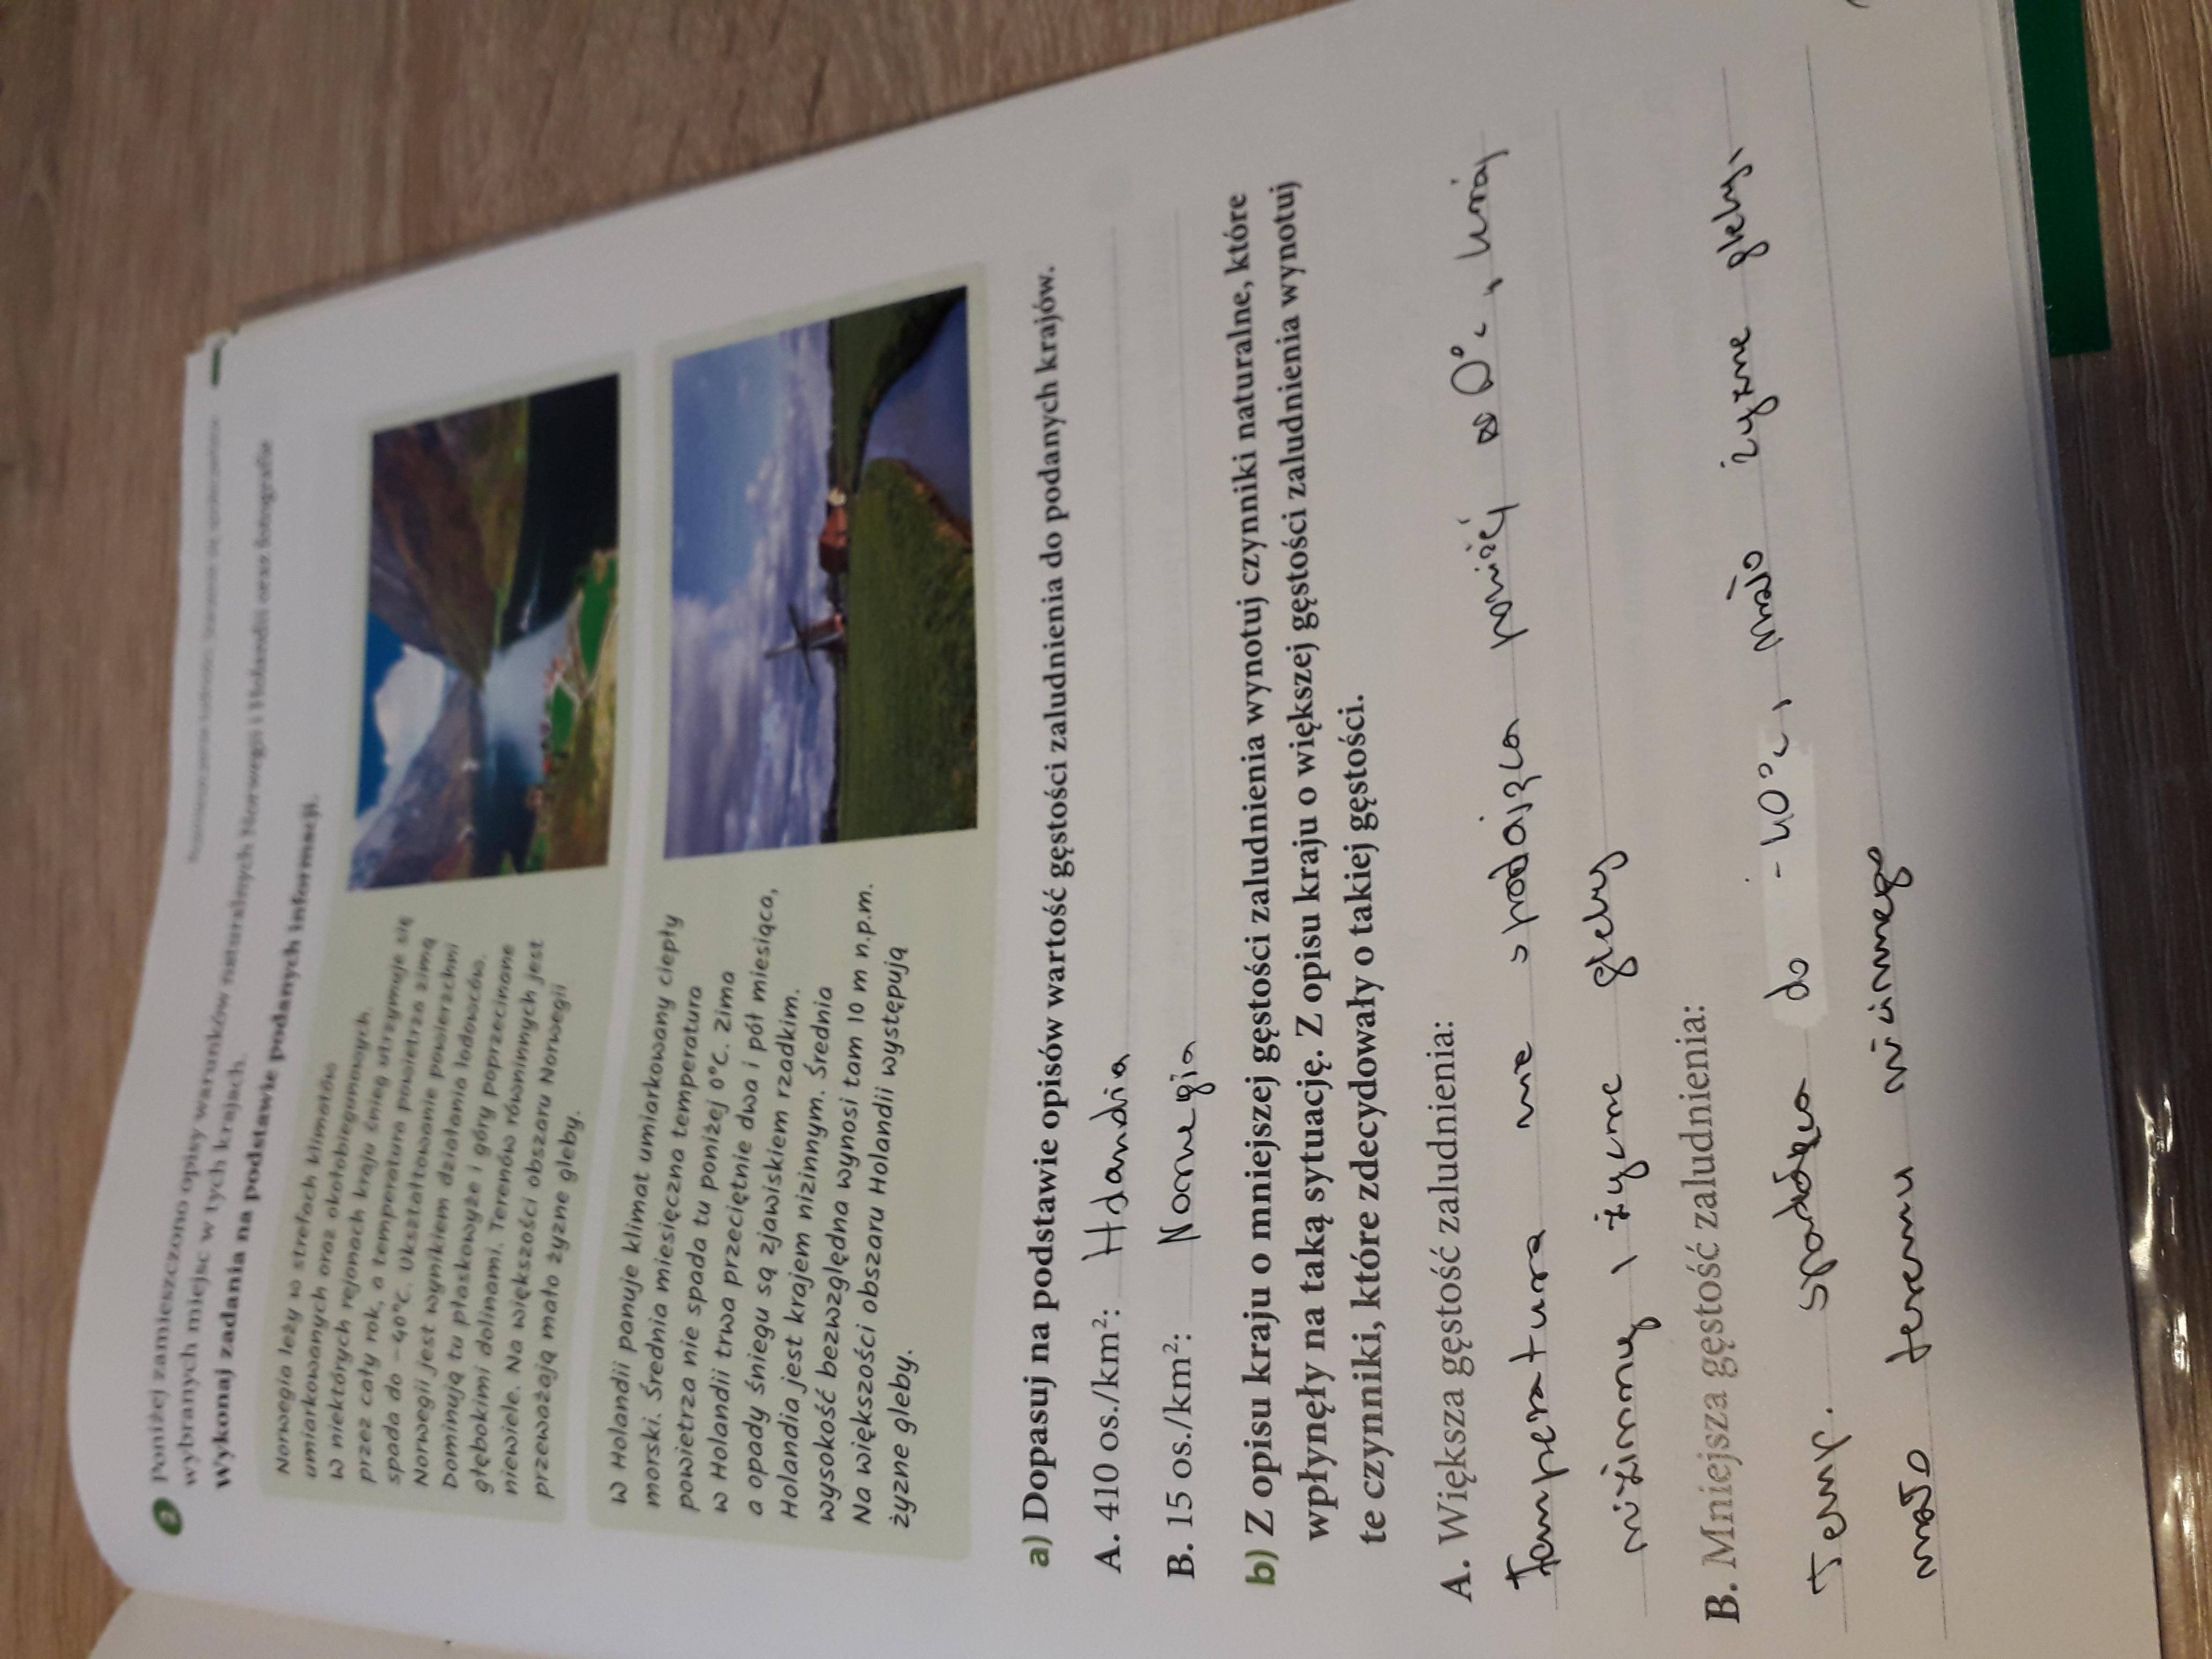 2 Poniżej zamieszczono opisy warunków naturalnych Norwegii i Holandii oraz fotografie
wybranych miejsc w tych krajach.
Wykonaj zadania na podstawie podanych informacji.
Norwegia leży w strefach klimatów
umiarkowanych oraz okołobiegunowych.
W niektórych rejonach kraju śnieg utrzymuje się
przez cały rok, a temperatura powietrza zimą
spada do −40°C. Ukształtowanie powierzchni
Norwegii jest wynikiem działania lodowców.
Dominują tu płaskowyże i góry poprzecinane
głębokimi dolinami. Terenów równinnych jest
niewiele. Na większości obszaru Norwegii
przeważają mało żyzne gleby.
W Holandii panuje klimat umiarkowany ciepły
morski. Średnia miesięczna temperatura
powietrza nie spada tu poniżej 0°C. Zima
w Holandii trwa przeciętnie dwa i pół miesiąca,
a opady śniegu są zjawiskiem rzadkim.
Holandia jest krajem nizinnym. Średnia
wysokość bezwzględna wynosi tam 10 m n.p.m.
Na większości obszaru Holandii występują
żyzne gleby.
a) Dopasuj na podstawie opisów wartość gęstości zaludnienia do podanych krajów.
A. 410 os./km²: Holandia
B. 15 os./km²: Norwegia
b) Z opisu kraju o mniejszej gęstości zaludnienia wynotuj czynniki naturalne, które
wpłynęły na taką sytuację. Z opisu kraju o większej gęstości zaludnienia wynotuj
te czynniki, które zdecydowały o takiej gęstości.
A. Większa gęstość zaludnienia:
Temperatura nie spadająca poniżej 0°C, kraj
nizinny, żyzne gleby
B. Mniejsza gęstość zaludnienia:
Temp. spadająca do -40°C, mało żyzne gleby,
mało terenu